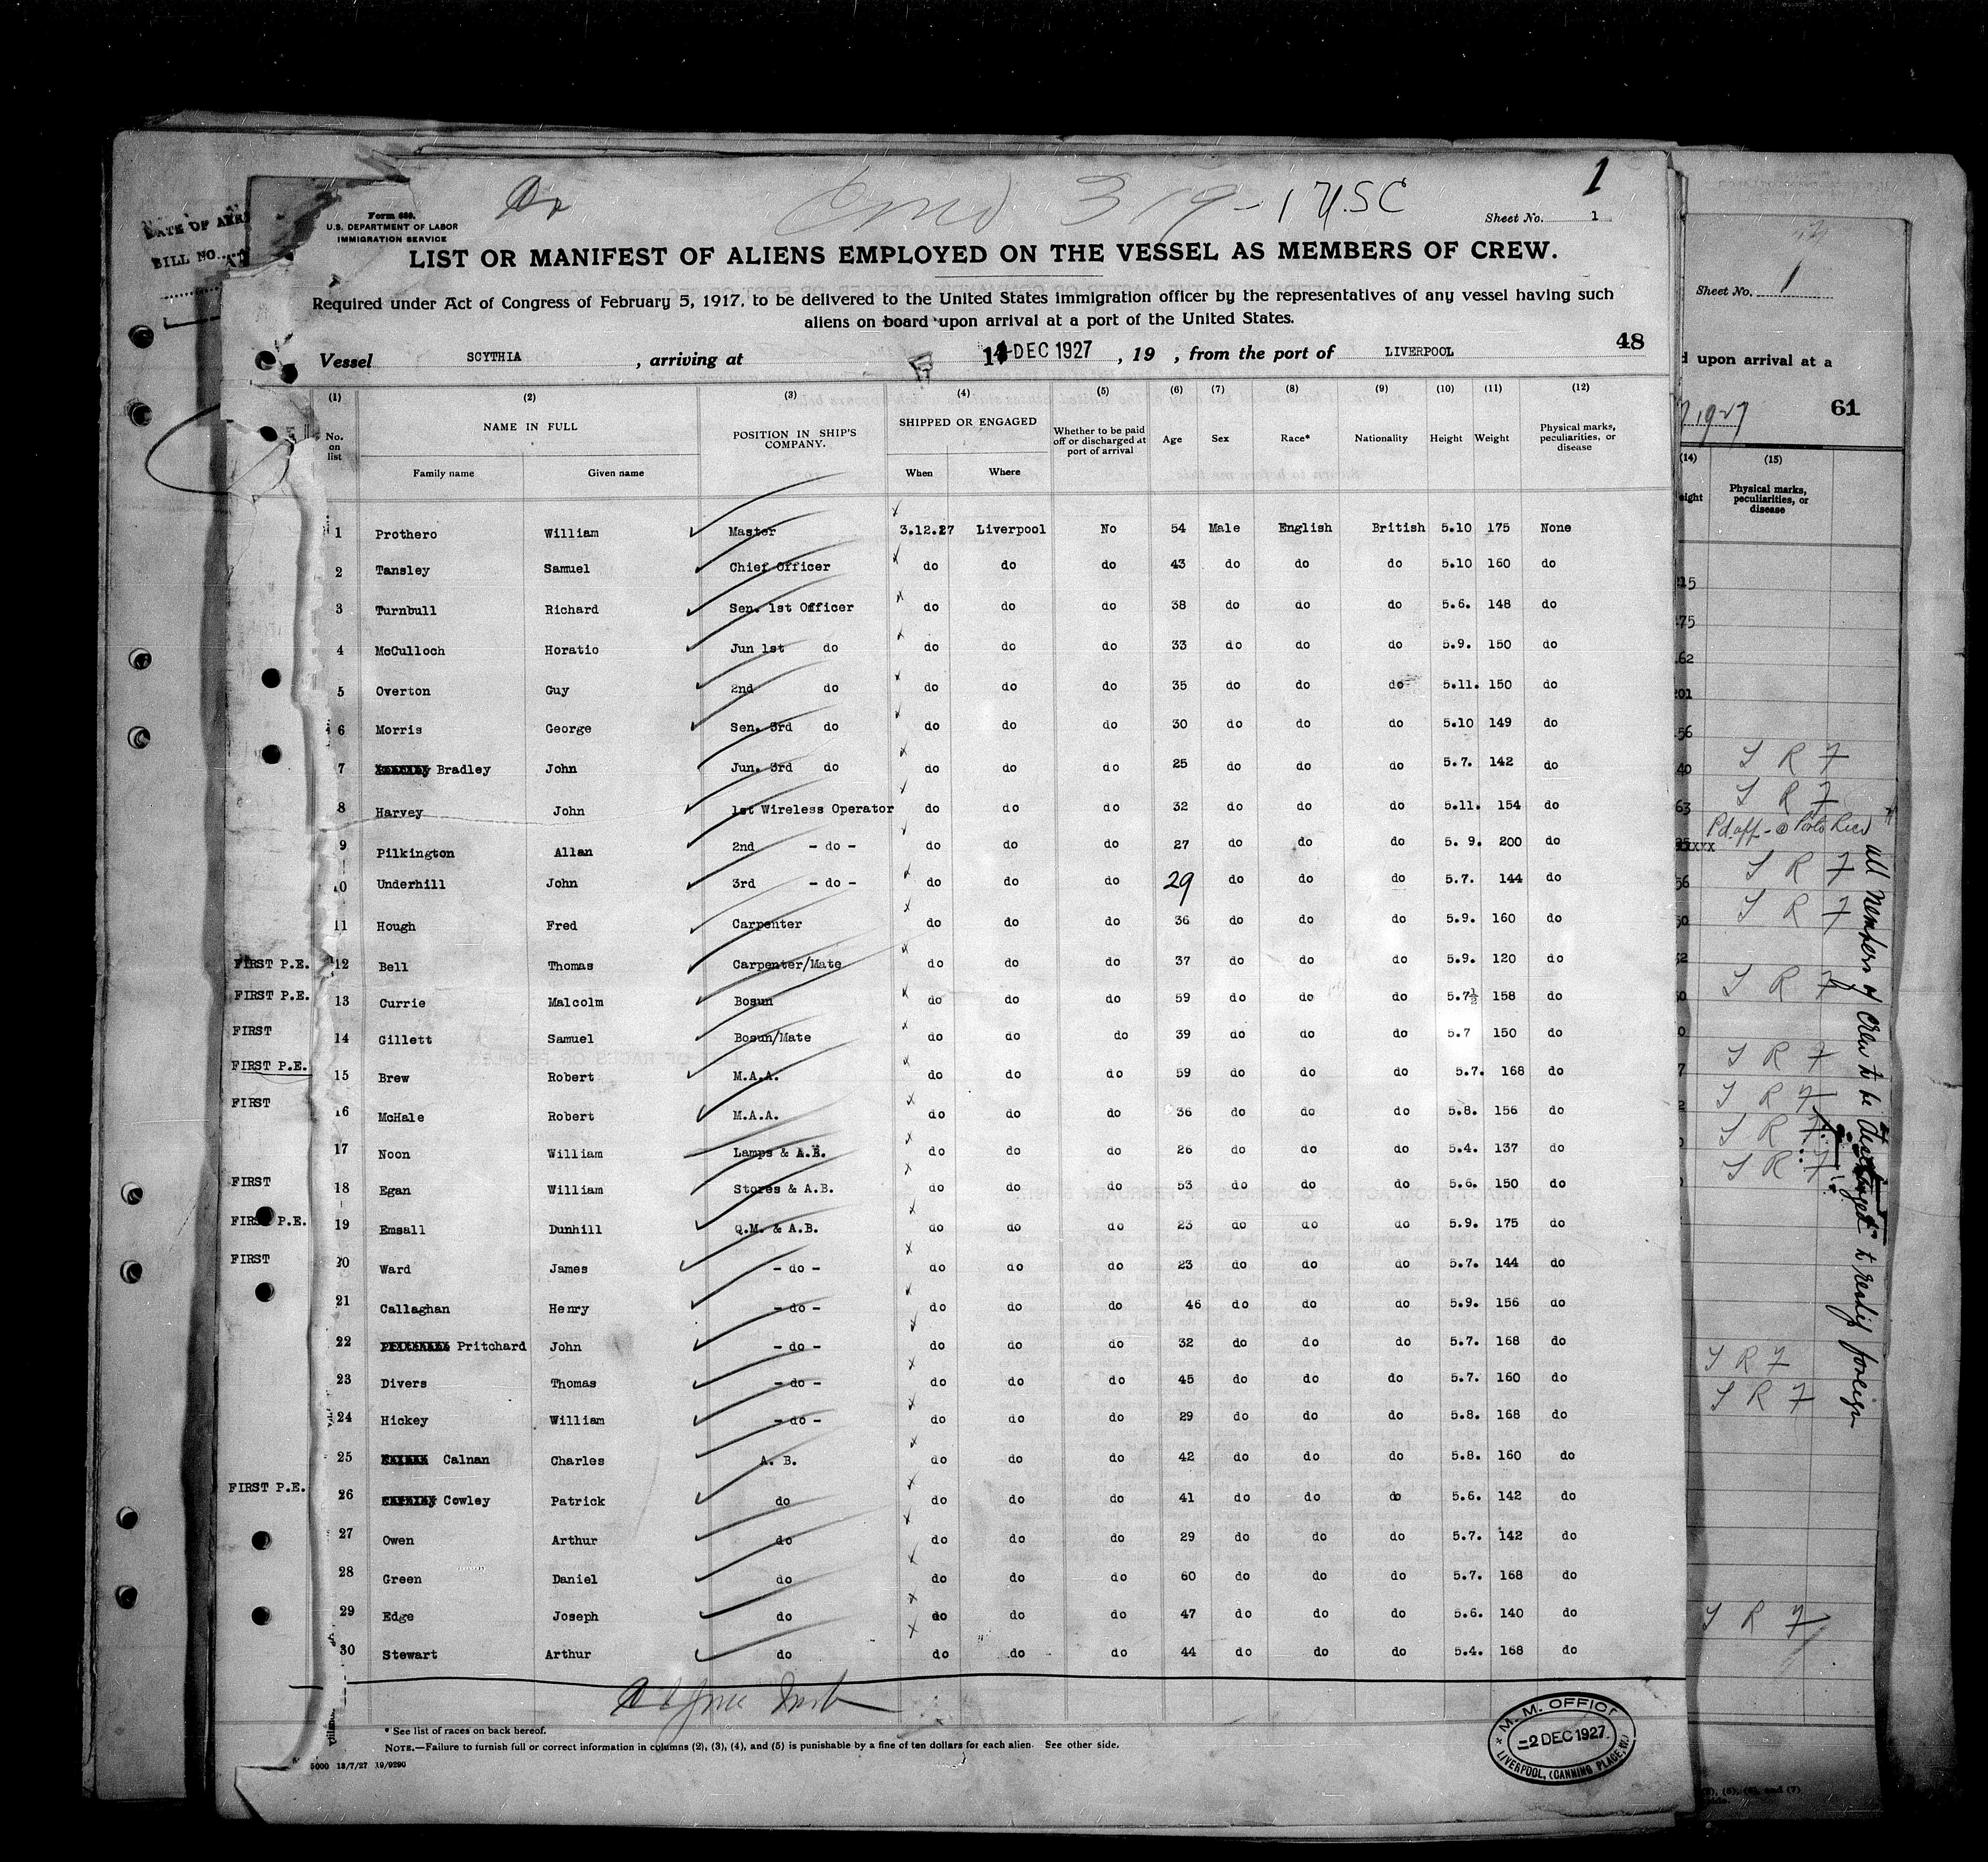 DATE OF
BILL NO.
Form 689.
U.S. DEPARTMENT OF LABOR
IMMIGRATION SERVICE
319 - 1 U.S.C
1
Sheet No. 1
LIST OR MANIFEST OF ALIENS EMPLOYED ON THE VESSEL AS MEMBERS OF CREW.
Required under Act of Congress of February 5, 1917, to be delivered to the United States immigration officer by the representatives of any vessel having such
aliens on board upon arrival at a port of the United States.
48
Vessel SCYTHIA , arriving at DEC 1927 , 19 , from the port of LIVERPOOL
(1) (2) (3) (4) (5) (6) (7) (8) (9) (10) (11) (12)
No. on list NAME IN FULL POSITION IN SHIP'S COMPANY. SHIPPED OR ENGAGED Whether to be paid off or discharged at port of arrival Age Sex Race* Nationality Height Weight Physical marks, peculiarities, or disease
Family name Given name When Where
1 Prothero William Master 3.12.27 Liverpool No 54 Male English British 5.10 175 None
2 Tansley Samuel Chief Officer do do do 43 do do do 5.10 160 do
3 Turnbull Richard Sen. 1st Officer do do do 38 do do do 5.6. 148 do
4 McCulloch Horatio Jun 1st do do do do 33 do do do 5.9. 150 do
5 Overton Guy 2nd do do do do 35 do do do 5.11. 150 do
6 Morris George Sen. 3rd do do do do 30 do do do 5.10 149 do
7 Bradley John Jun. 3rd do do do do 25 do do do 5.7. 142 do
8 Harvey John 1st Wireless Operator do do do 32 do do do 5.11. 154 do
9 Pilkington Allan 2nd - do - do do do 27 do do do 5. 9. 200 do
10 Underhill John 3rd - do - do do do 29 do do do 5.7. 144 do
11 Hough Fred Carpenter do do do 36 do do do 5.9. 160 do
FIRST P.E. 12 Bell Thomas Carpenter/Mate do do do 37 do do do 5.9. 120 do
FIRST P.E. 13 Currie Malcolm Bosun do do do 59 do do do 5.7½ 158 do
FIRST 14 Gillett Samuel Bosun/Mate do do do 39 do do do 5.7 150 do
FIRST P.E. 15 Brew Robert M.A.A. do do do 59 do do do 5.7. 168 do
FIRST 16 McHale Robert M.A.A. do do do 36 do do do 5.8. 156 do
17 Noon William Lamps & A.B. do do do 26 do do do 5.4. 137 do
FIRST 18 Egan William Stores & A.B. do do do 53 do do do 5.6. 150 do
FIRST P.E. 19 Emsall Dunhill Q.M. & A.B. do do do 23 do do do 5.9. 175 do
FIRST 20 Ward James - do - do do do 23 do do do 5.7. 144 do
21 Callaghan Henry - do - do do do 46 do do do 5.9. 156 do
22 Pritchard John - do - do do do 32 do do do 5.7. 168 do
23 Divers Thomas - do - do do do 45 do do do 5.7. 160 do
24 Hickey William - do - do do do 29 do do do 5.8. 168 do
25 Calnan Charles A. B. do do do 42 do do do 5.8. 160 do
FIRST P.E. 26 Cowley Patrick do do do do 41 do do do 5.6. 142 do
27 Owen Arthur do do do do 29 do do do 5.7. 142 do
28 Green Daniel do do do do 60 do do do 5.7. 168 do
29 Edge Joseph do do do do 47 do do do 5.6. 140 do
30 Stewart Arthur do do do do 44 do do do 5.4. 168 do
* See list of races on back hereof.
NOTE.—Failure to furnish full or correct information in columns (2), (3), (4), and (5) is punishable by a fine of ten dollars for each alien. See other side.
5000 13/7/27 19/9290
M. M. OFFICE
2 DEC 1927
LIVERPOOL, (CANNING PLACE,W.)
Sheet No. 1
upon arrival at a
1927
61
(14) (15)
Physical marks, peculiarities, or disease
S R 7
S R 7
Pd off - @ Porto Rico
S R 7
S R 7
S R 7
S R 7
S R 7
S R 7
S R 7
S R 7
S R 7
S R 7
all Members of Crew to be to reship foreign
(5), (6), and (7)